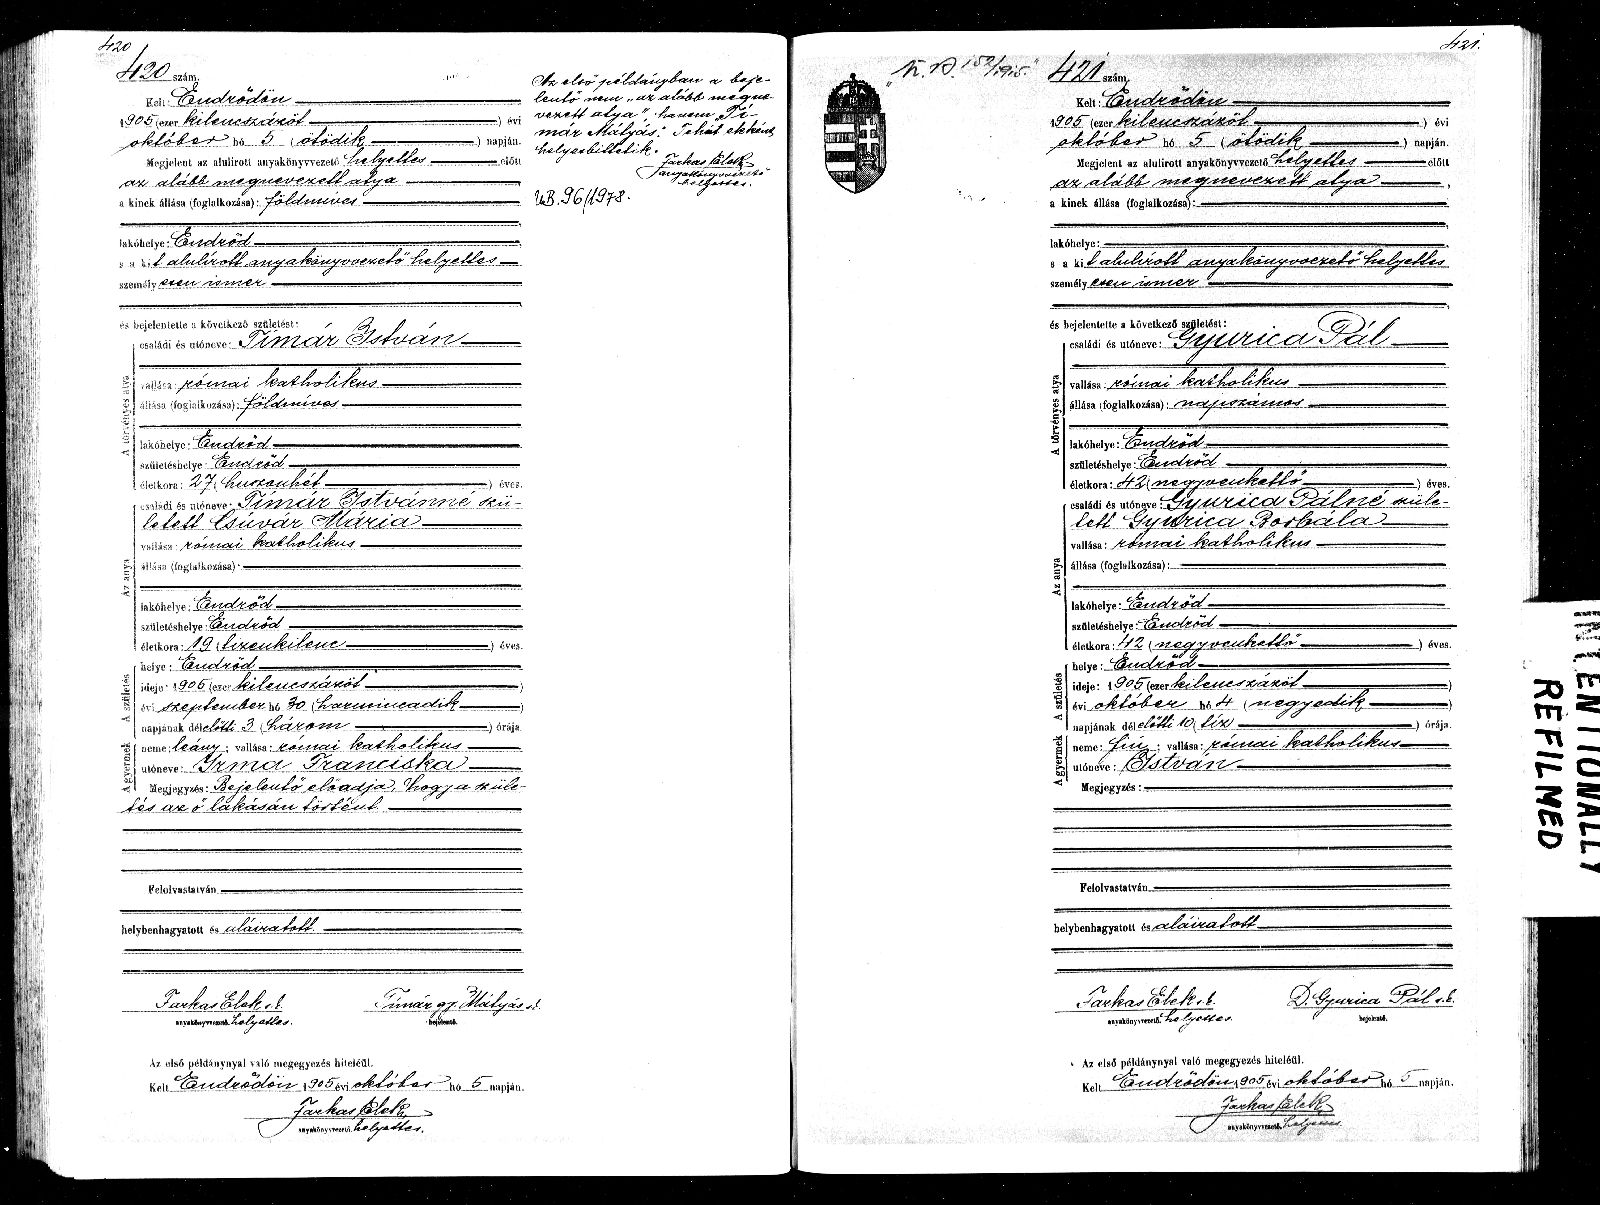 420
420 szám.
Kelt: Endrődön
1905 (ezer kilencszázöt ) évi
október hó 5 (ötödik ) napján.
Megjelent az alulirott anyakönyvvezető helyettes előtt
az alább megnevezett atya
a kinek állása (foglalkozása): földmíves
lakóhelye: Endrőd
s a kit alulírott anyakönyvvezető helyettes
személyesen ismer
és bejelentette a következő születést:
A törvényes atya
családi és utóneve: Tímár István
vallása: római katholikus
állása (foglalkozása): földmíves
lakóhelye: Endrőd
születéshelye: Endrőd
életkora: 27 (huszonhét ) éves.
Az anya
családi és utóneve: Tímár Istvánné szü-
letett Csúvár Mária
vallása: római katholikus
állása (foglalkozása):
lakóhelye: Endrőd
születéshelye: Endrőd
életkora: 19 (tizenkilenc ) éves.
A születés
helye: Endrőd
ideje: 1905 (ezer kilencszázöt )
évi szeptember hó 30 (harmincadik )
napjának délelőtti 3 (három ) órája.
A gyermek
neme: leány; vallása: római katholikus
utóneve: Irma Franciska
Megjegyzés: Bejelentő előadja, hogy a szüle-
tés az ő lakásán történt.
Felolvastatván
helybenhagyatott és aláiratott.
Farkas Elek s.k. Tímár gy. Mátyás s.k.
anyakönyvvezető helyettes. bejelentő.
Az első példánynyal való megegyezés hiteléül.
Kelt Endrődön 1905 évi október hó 5 napján.
Farkas Elek
anyakönyvvezető helyettes.
Az első példányban a beje-
lentő nem "az alább megne-
vezett atya", hanem Tí-
már Mátyás. Tehát ekként
helyesbittetik.
Farkas Elek
anyakönyvvezető
helyettes.
UB. 96/1978.
421.
152/1915."
421 szám.
Kelt: Endrődön
1905 (ezer kilencszázöt ) évi
október hó 5 (ötödik ) napján.
Megjelent az alulirott anyakönyvvezető helyettes előtt
az alább megnevezett atya
a kinek állása (foglalkozása):
lakóhelye:
s a kit alulírott anyakönyvvezető helyettes
személyesen ismer
és bejelentette a következő születést:
A törvényes atya
családi és utóneve: Gyurica Pál
vallása: római katholikus
állása (foglalkozása): napszámos
lakóhelye: Endrőd
születéshelye: Endrőd
életkora: 42 (negyvenkettő ) éves.
Az anya
családi és utóneve: Gyurica Pálné szüle-
tett Gyurica Borbála
vallása: római katholikus
állása (foglalkozása):
lakóhelye: Endrőd
születéshelye: Endrőd
életkora: 42 (negyvenkettő ) éves.
A születés
helye: Endrőd
ideje: 1905 (ezer kilencszázöt )
évi október hó 4 (negyedik )
napjának délelőtti 10 (tíz ) órája.
A gyermek
neme: fiú; vallása: római katholikus
utóneve: István
Megjegyzés:
Felolvastatván
helybenhagyatott és aláiratott
Farkas Elek s.k. D. Gyurica Pál s.k.
anyakönyvvezető helyettes. bejelentő.
Az első példánynyal való megegyezés hiteléül.
Kelt Endrődön 1905 évi október hó 5 napján.
Farkas Elek
anyakönyvvezető helyettes
INTENTIONALLY
REFILMED